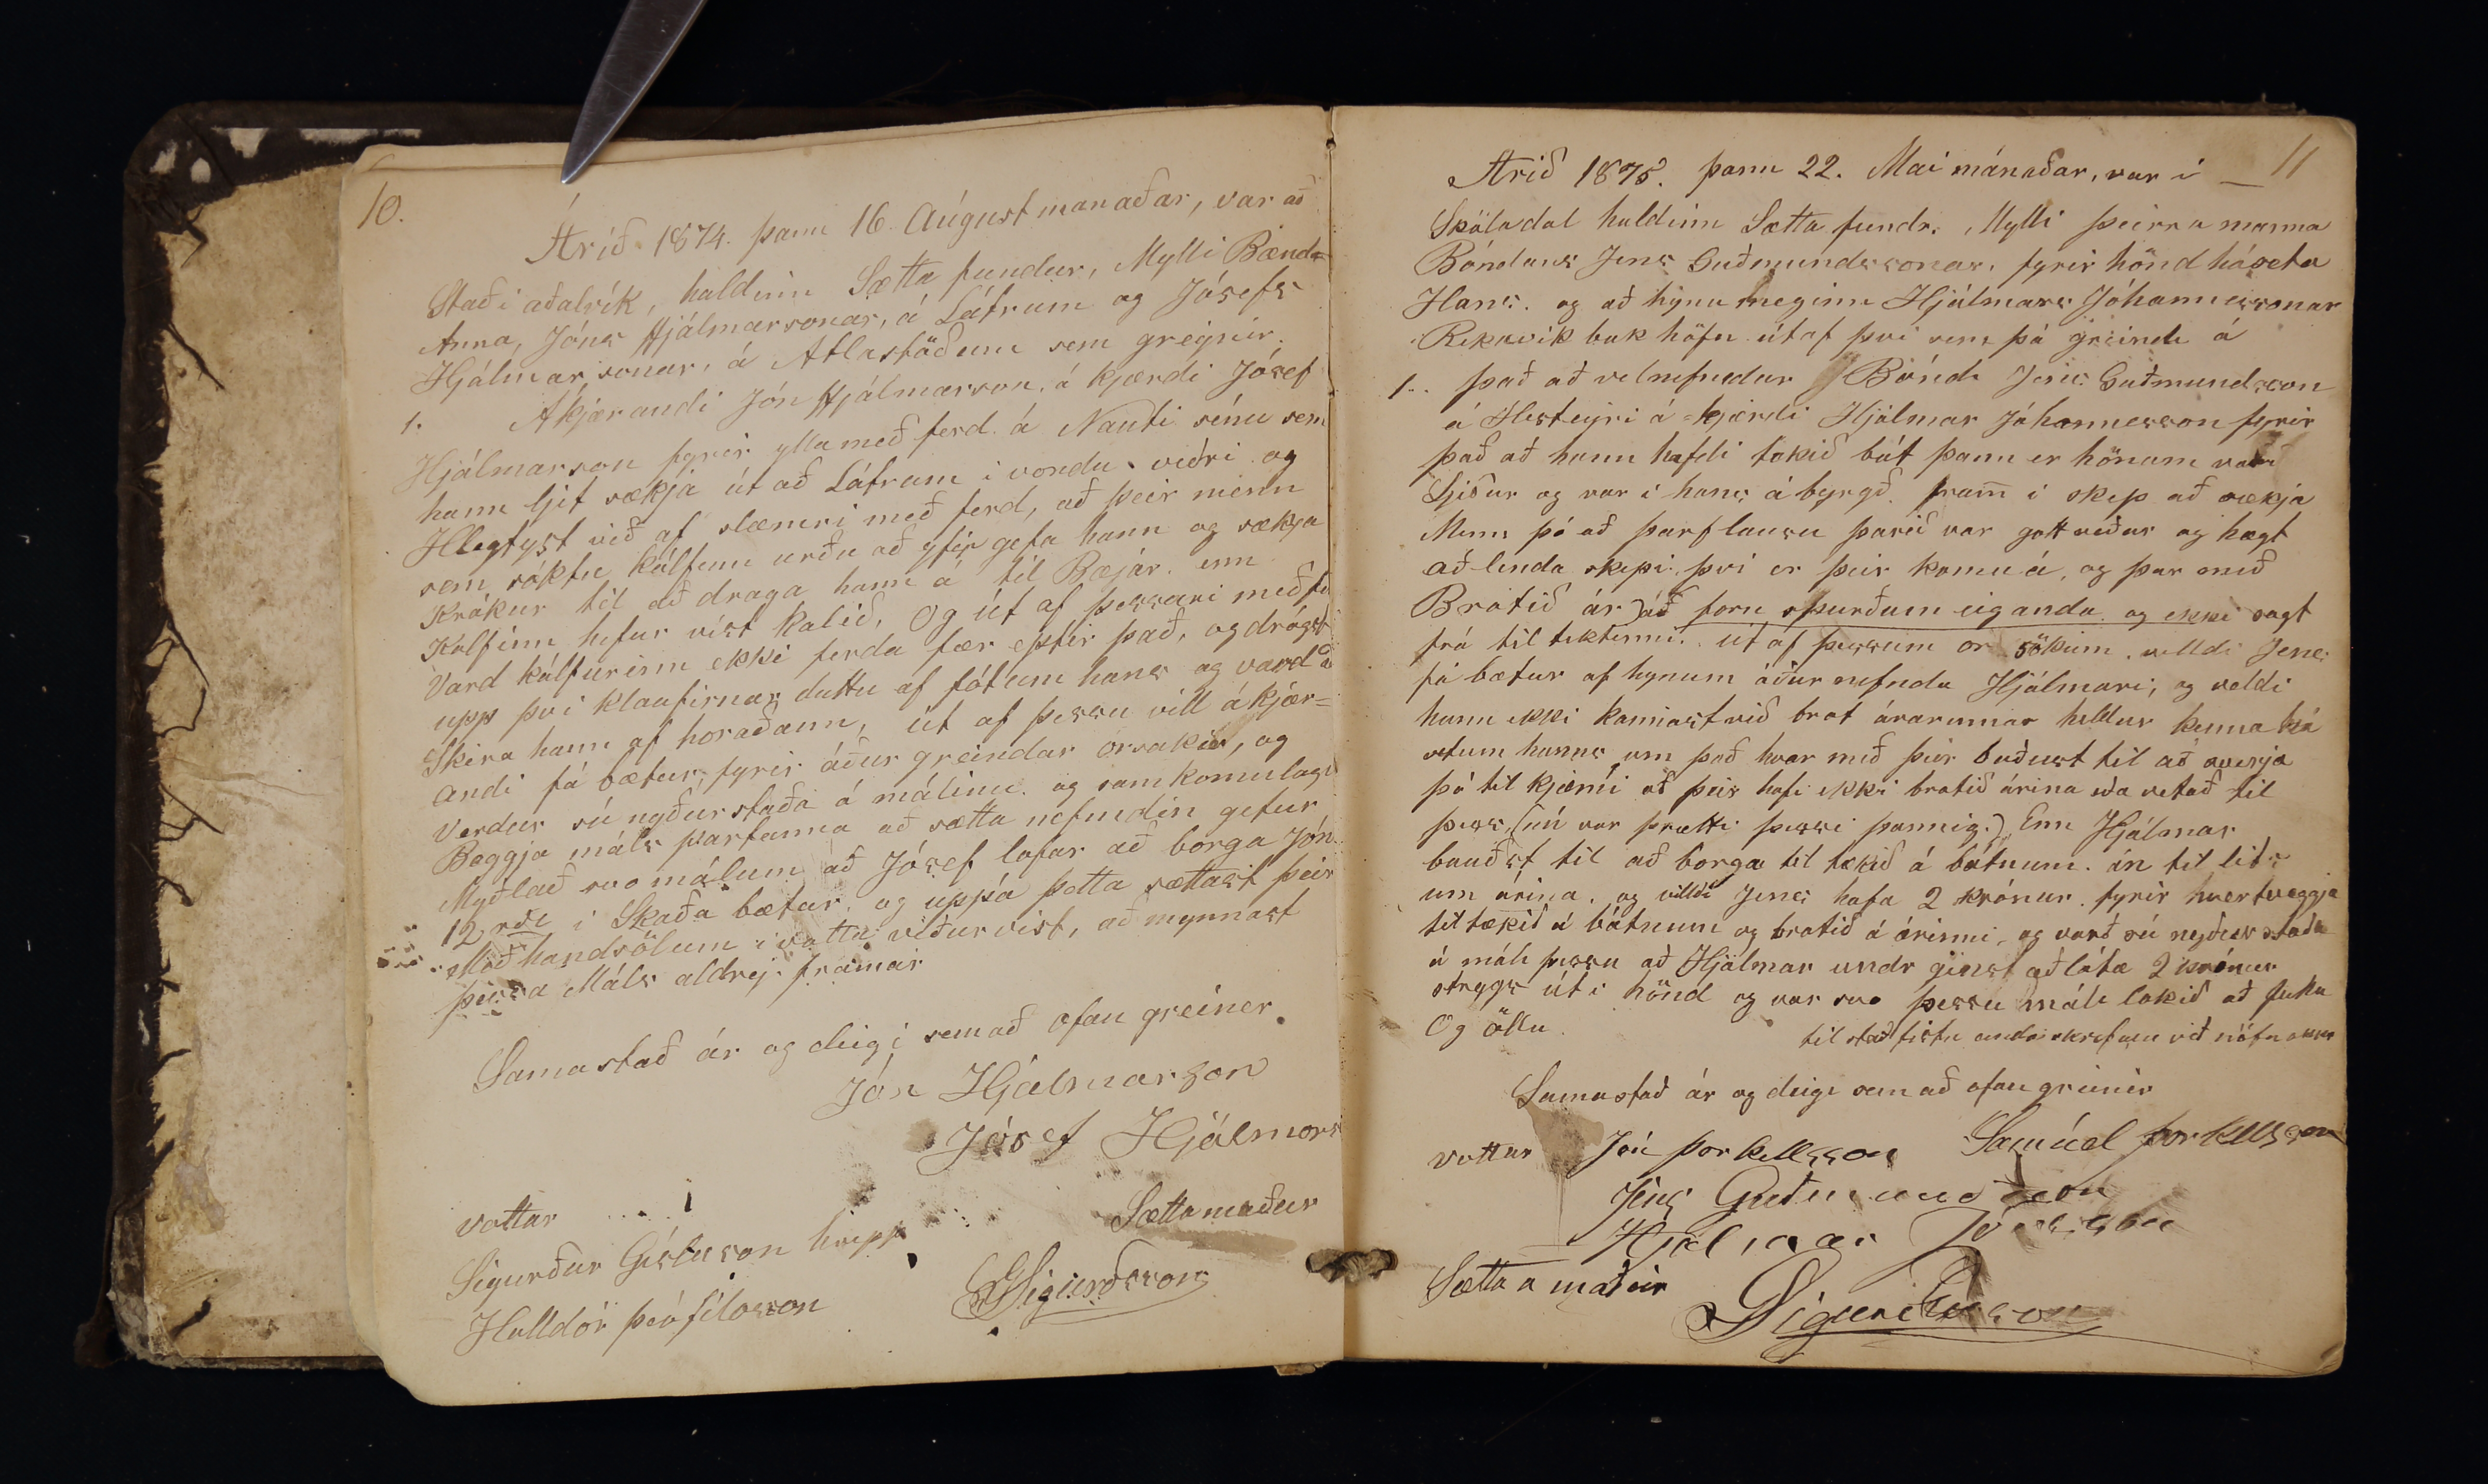 10.
Árið 1874. þann 16 Aúgustmanaðar, var að
Stað i aðalvík, haldinn Sætta fundur, Mylli Bænda
Anna, Jóns Hjálmarsonar, á Látrum og Jósefs
Hjálmarsonar, á Atlastöðum sem greynir.
1. Ákjærandi Jón Hjálmarson, á kjærdi Jósef
Hjálmarson fyrir ylla með ferd á Nauti sínu sem
hann ljet sækja út að Látrum i vondu veðri og
Hlegtyst við af slæmri með ferd, að þeir menn
sem sóktu kálfinn urðu að yfir gefa hann og sækja
Krákur til að draga hann á til Bæjár. enn
Kalfinn hefur víst kalið, Og út af þessari með fe
Vard kálfurinn ekki ferda fær eptir það, og drógst
upp þvi klaufirnar duttu af fótum hans og vard a
Skera hann af horaðann, út af þessu vill ákjær=
andi fá bætur, fyrir áður greindar orsakir, og
Verdur sú nyðurstaða á málinu. og samkomulagi
Beggja máls partanna að sætta nefndin gefur
Myðlað svo málum að Jósef lofar að borga Jón
12 rdl i Skaða bætur, og uppá þetta sættast þeir
Með handsölum i votta viðurvist, að mynnast
þessa Máls aldrej framar
Samastað ár og deigi sem að ofan greiner.
Jón Hjálmarson
Jósef Hjálmars
vottar
Sættamaður
Sigurður Gíslason hrepp
GSigurdsson
Halldór þeófílosson
11
Arið 1875. þann 22. Mai mánaðar, var i
Sköladal haldinn Sætta fundr. Mylli þeirra manna
Bóndans Jens Guðmundssonar, fyrir hönd háseta
Hans. og að hynu meginn Hjálmars Jóhannessonar
Rekavík bak höfn út af þvi sem þá greinde á
1.. það að velnefndur Bónde Jens Guðmundsson
á Hesteyri á=kjærdi Hjálmar Jóhannesson fyrir
það að hann hafdi tekið bát þann er hönum var
Ljeður og var i hans ábyrgð. fram i skip að sækja
Menn þó að þarflausu þarið var gott veður og hægt
að lenda skipi, þvi er þeir komu á, og þar með
Brotið ár) að forn spurðum eiganda og ekki sagt
frá til tektinni. út af þessum or sökum. villdi Jens
fá bætur af hynum áður nefnda Hjálmari, og veldi
hann ekki kannast við brot árarinnar heldur kenna há
setum hanns um það hvar með þeir buðust til að sverja
þó til kjæmi að þeir hafi ekki brotið árina eða vetað til
þess, (nú var þrætti þessi þannig.) Enn Hjálmar
bauðst til að borga til tækið á bátnum. án til lits
um árina. og villdi Jens hafa 2 krónur. fyrir hvertveggja
tiltækið á bátnum og brotið á árinni, og varð sú nyður staða
á máli þessu að Hjálmar undr gingst að láta 2 krónur
strygs út i hönd og var svo þessu máli lokið að fullu
Og öllu. til staðfistu undir skrifum við nöfn okkar
Samastað ár og deigi sem að ofan greinir
vottar Jón þorkellsson Samúel þorkellsson
Jens Guðmundsson
Hjálmar Jóhansson
Sætta a maður
GSigurdsson